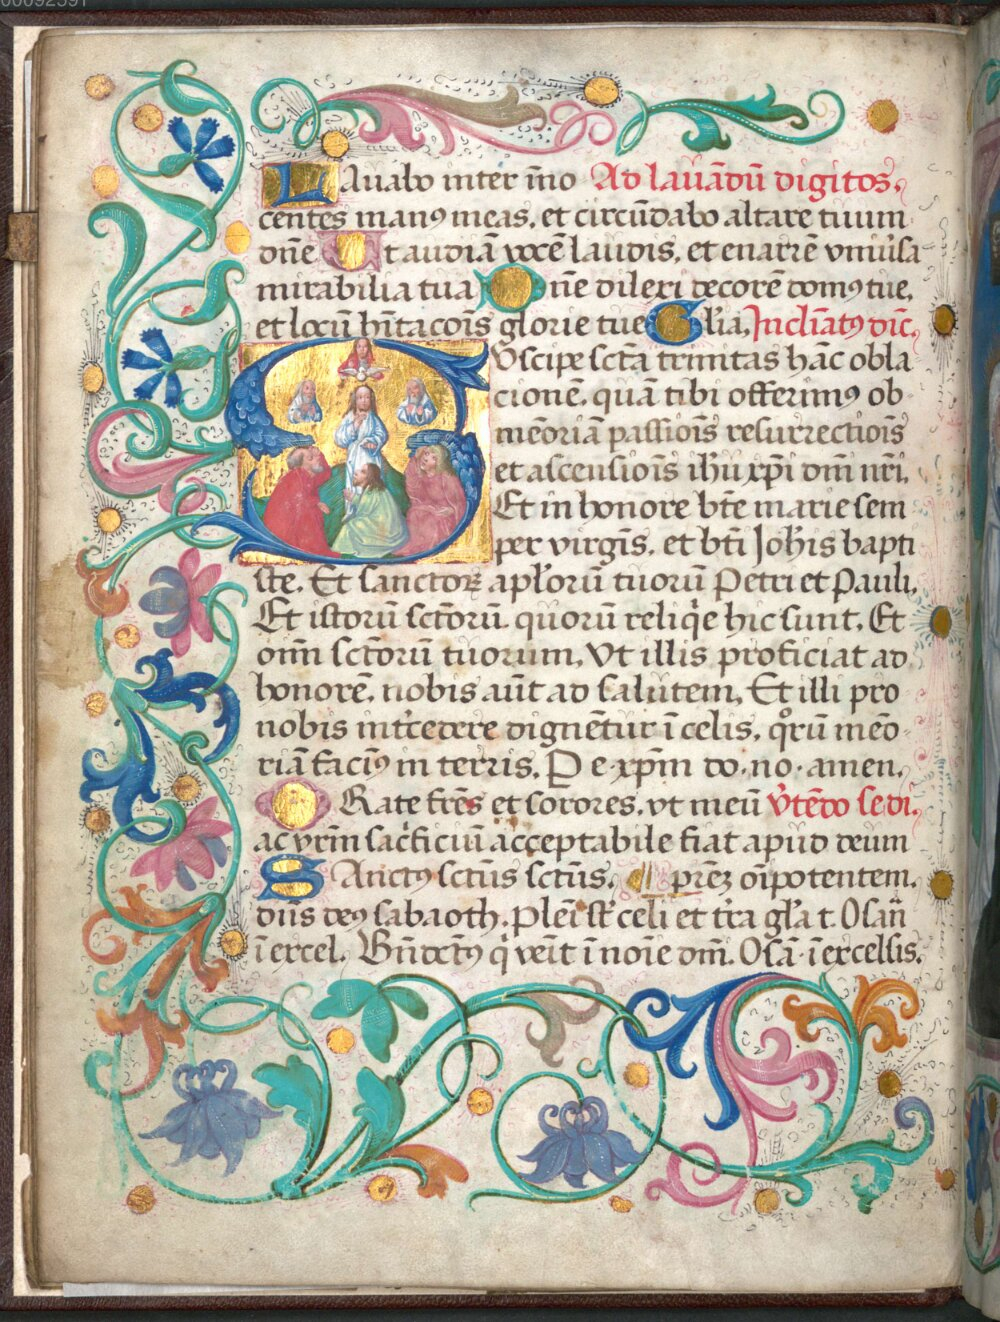 00092391
Lauabo inter ino Ad lauādū digitos.
centes manꝯ meas. et circūdabo altare tuum
dn̄e Ut audiā vocē laudis. et enarrē vniu'sa
mirabilia tua Dn̄e dilexi decorē domꝯ tue.
et locū hītacōis glorie tue Glīa. Inclīatꝯ dic̄
Suscipe sctā trinitas hāc obla
cionē. quā tibi offerimꝯ ob
mēoriā passiōis resurrectiōis
et ascensiōis ihū xp̄i dn̄i nr̄i.
Et in honore btē marie sem
per virgīs. et bt̄i Joh̄is bapti
ste. Et sanctoꝝ ap̄loruū tuorū Petri et Pauli.
Et istorū sctōrū quorū reliq̄e hic sunt. Et
om̄i sctōrū tuorum. Vt illis proficiat ad
honorē. nobis aūt ad salutem. Et illi pro
nobis int'cedere dignēt̄ur ī celis. qͦrū mēo
riā faciꝰ in terris. P e xp̄m do. no. amen.
Orate frēs et sorores. vt meū v'tēdo se di.
ac vrm̄ sac'ficiū acceptabile fiat apud deum
Sanctꝯ sctūs sctūs. prēꝫ oīpotentem.
dn̄s deꝯ sabaoth. Plēi st̄ celi et t'ra gl'a t. Osan̄
ī excel. Bn̄dctꝯ q̇ veīt ī noīe dn̄i. Osā ī excelsis.